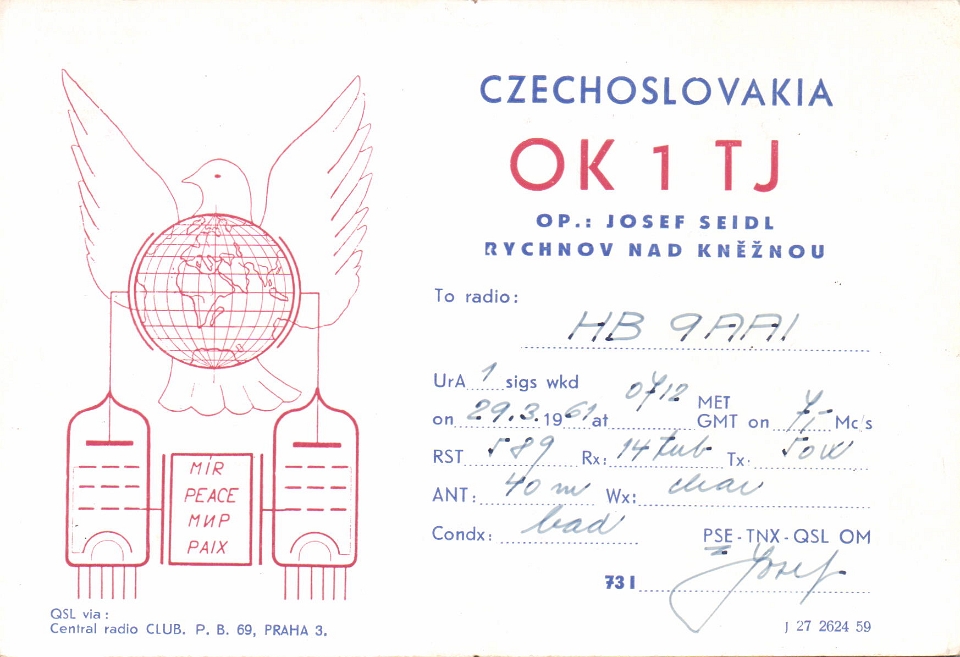 CZECHOSLOVAKIA
OK 1 TJ
OP.: JOSEF SEIDL
RYCHNOV NAD KNĚŽNOU
To radio: HB 9AAI
UrA 1 sigs wkd
on 29.3.1961 at 0712 MET GMT on 7,- Mc/s
RST 589 Rx: 14 tub Tx: 50W
ANT: 40 m Wx:
Condx: bad PSE-TNX-QSL OM
73! Josef
MÍR
PEACE
МИР
PAIX
QSL via:
Central radio CLUB. P. B. 69, PRAHA 3.
J 27 2624 59